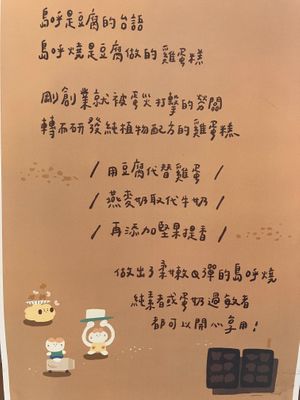 島呼是豆腐的台語
島呼燒是豆腐做的雞蛋糕
剛創業就被蛋災打擊的勞闆
轉而研發純植物配方的雞蛋糕
/ 用豆腐代替雞蛋 /
/ 燕麥奶取代牛奶 /
/ 再添加堅果提香 /
做出了柔嫩Q彈的島呼燒
純素者或蛋奶過敏者
都可以開心享用!